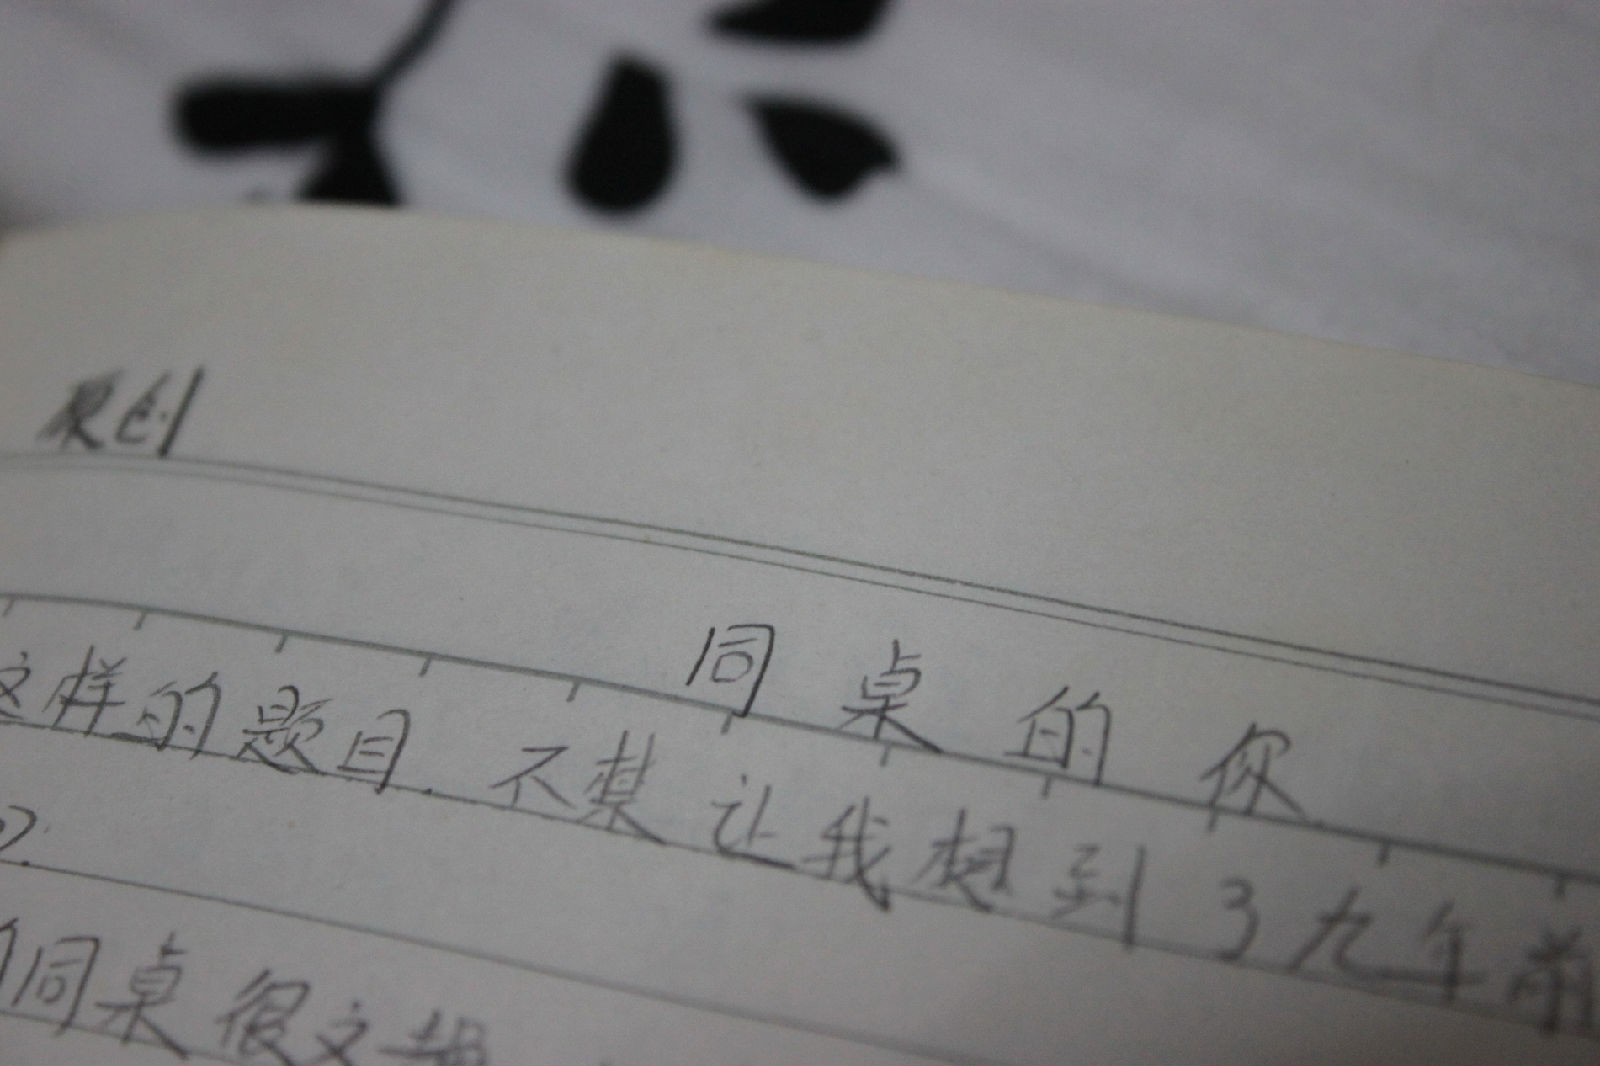 原创
同桌的你
这样的题目.不禁让我想到了九年前
同桌很文